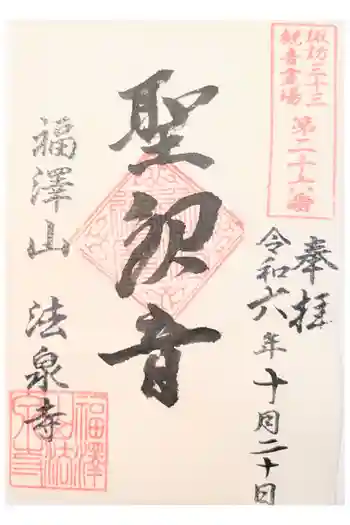 諏訪三十三
観音霊場
第二十六番
奉拝
令和六年十月二十日
聖観音
福澤山 法泉寺